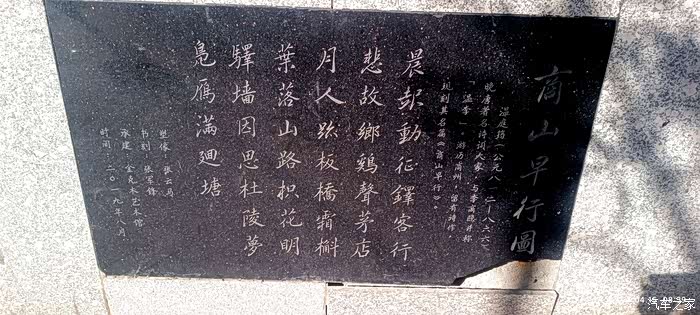 商山早行圖
温庭筠(公元八一二—八六六)
晚唐著名诗词大家,与李商隐并称
“温李”。游历商州,留有诗作,
现刻其名篇《商山早行》。
晨起動征鐸客行
悲故鄉鷄聲茅店
月人跡板橋霜槲
葉落山路枳花明
驛墙因思杜陵夢
鳧鴈滿廻塘
塑像:张云
书刻:张
承建:金克木艺术馆
时间:二〇一九年八月
汽车之家